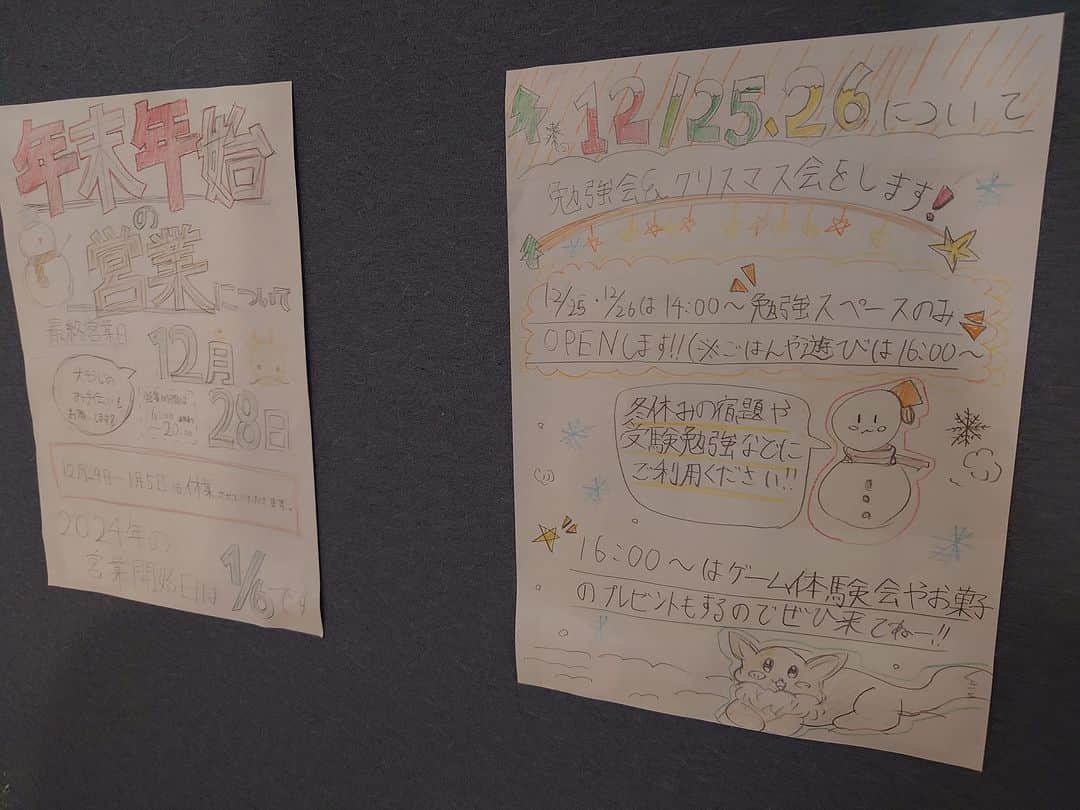 年末年始
の
営業について
最終営業日
12月
28日
チラシの
お手伝いも
お願いします
20:00
12月29日〜1月5日は休業させていただきます。
2024年の
営業開始日は1/6です
12/25.26について
勉強会&クリスマス会をします!
12/25・12/26は14:00〜勉強スペースのみ
OPENします!!(※ごはんや遊びは16:00〜
冬休みの宿題や
受験勉強などに
ご利用ください!!
16:00〜はゲーム体験会やお菓子
のプレゼントもするのでぜひ来てねー!!